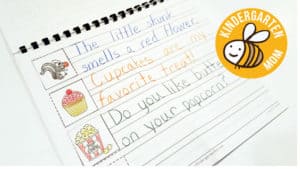 The little skunk
smells a red flower.
Cupcakes are my
favorite treat!
Do you like butte
on your popcorn?
KINDERGARTEN
MOM